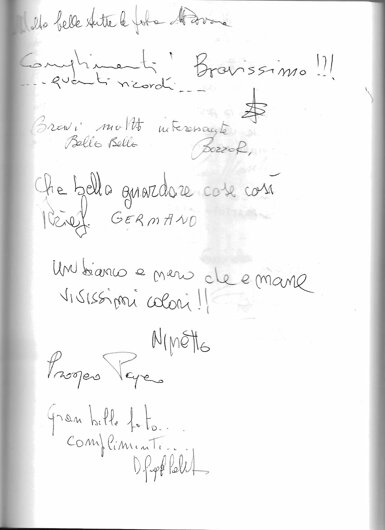 Molto belle tutte le foto
Complimenti! Bravissimo!!!
....quanti ricordi....
Bravi molto interessante
Bello Bello
Che bella guardare cose così
GERMANO
Un bianco e nero che emana
vivissimi colori!!
Ninetto
Prospero
Gran belle foto....
complimenti...